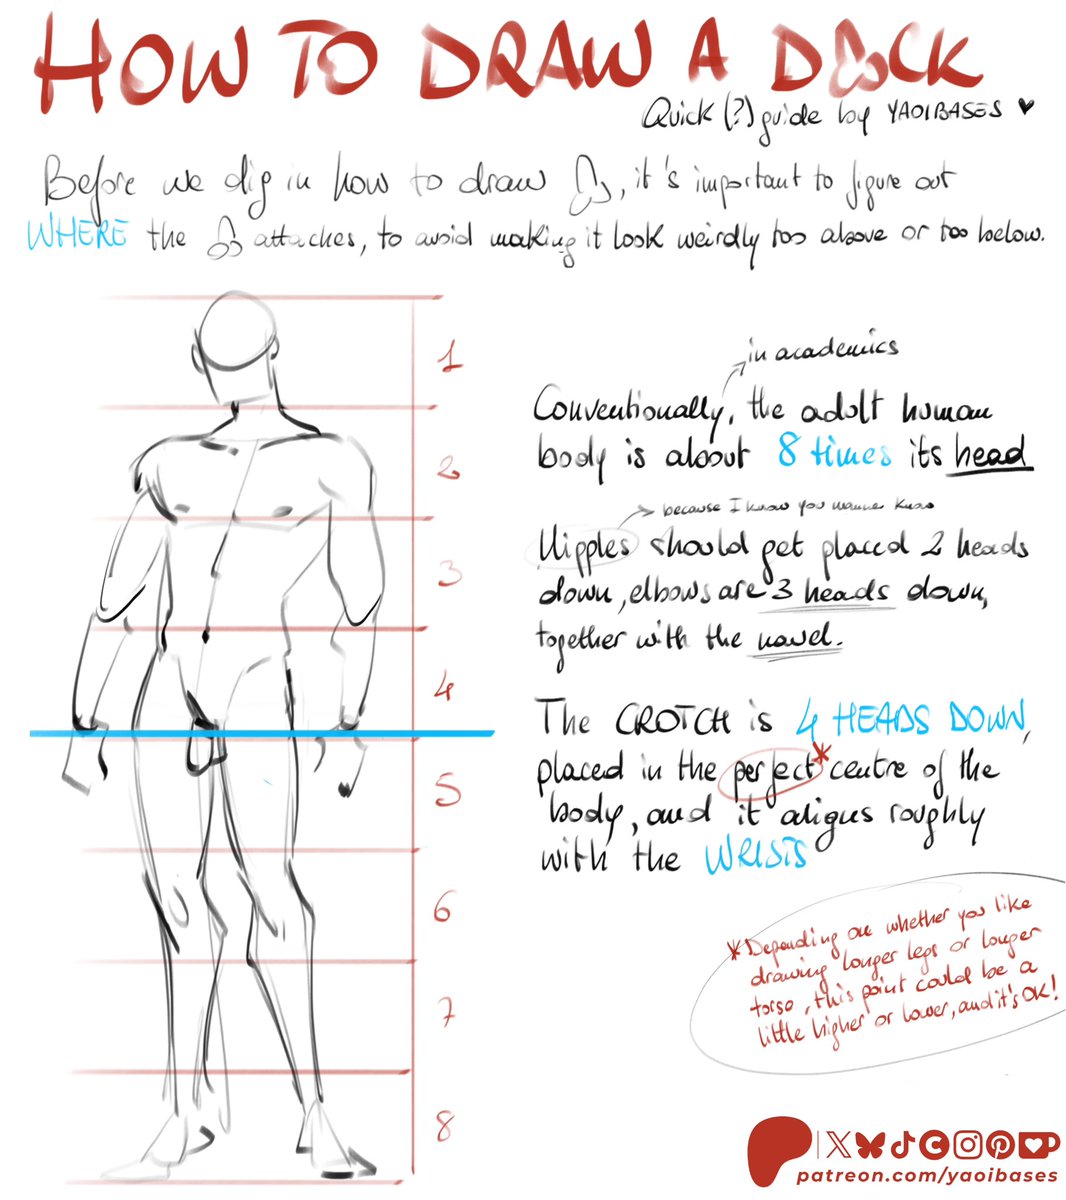 HOW TO DRAW A DCK
Quick (?) guide by YAOIBASES ♥
Before we dig in how to draw , it's important to figure out
WHERE the attaches, to avoid making it look weirdly too above or too below.
1
2
3
4
5
6
7
8
in academics
Conventionally, the adult human
body is about 8 times its head
because I know you wanna know
Nipples should get placed 2 heads
down, elbows are 3 heads down,
together with the navel.
The CROTCH is 4 HEADS DOWN,
placed in the perfect* centre of the
body, and it aligns roughly
with the WRISTS
*Depending on whether you like
drawing longer legs or longer
torso, this point could be a
little higher or lower, and it's OK!
patreon.com/yaoibases